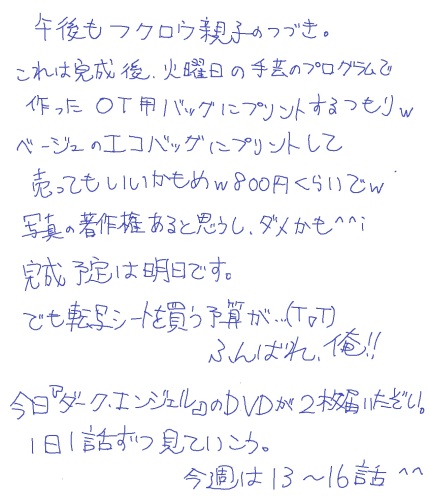 午後もフクロウ親子のつづき。
これは完成後、火曜日の手芸のプログラムで
作ったOT用バッグにプリントするつもりw
ベージュのエコバッグにプリントして
売ってもいいかもめw800円くらいでw
写真の著作権あると思うし、ダメかも^^;
完成予定は明日です。
でも転写シートを買う予算が…(T▽T)
ふんばれ、俺!!
今日『ダーク・エンジェル』のDVDが2枚届いたぞい。
1日1話ずつ見ていこう。
今週は13～16話^^